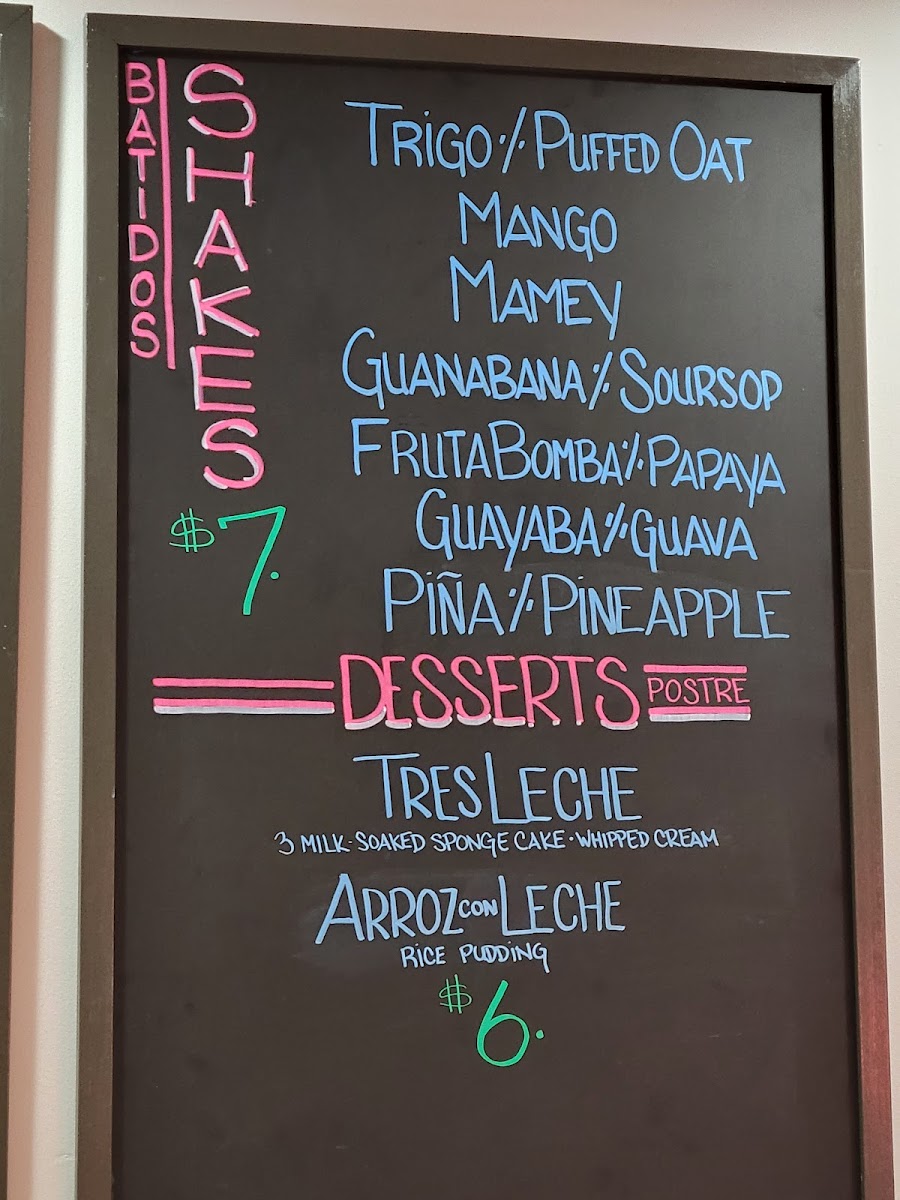 BATIDOS
SHAKES
$7.
TRIGO/PUFFED OAT
MANGO
MAMEY
GUANABANA/SOURSOP
FRUTABOMBA/PAPAYA
GUAYABA/GUAVA
PIÑA/PINEAPPLE
DESSERTS POSTRE
TRES LECHE
3 MILK-SOAKED SPONGE CAKE • WHIPPED CREAM
ARROZ CON LECHE
RICE PUDDING
$6.